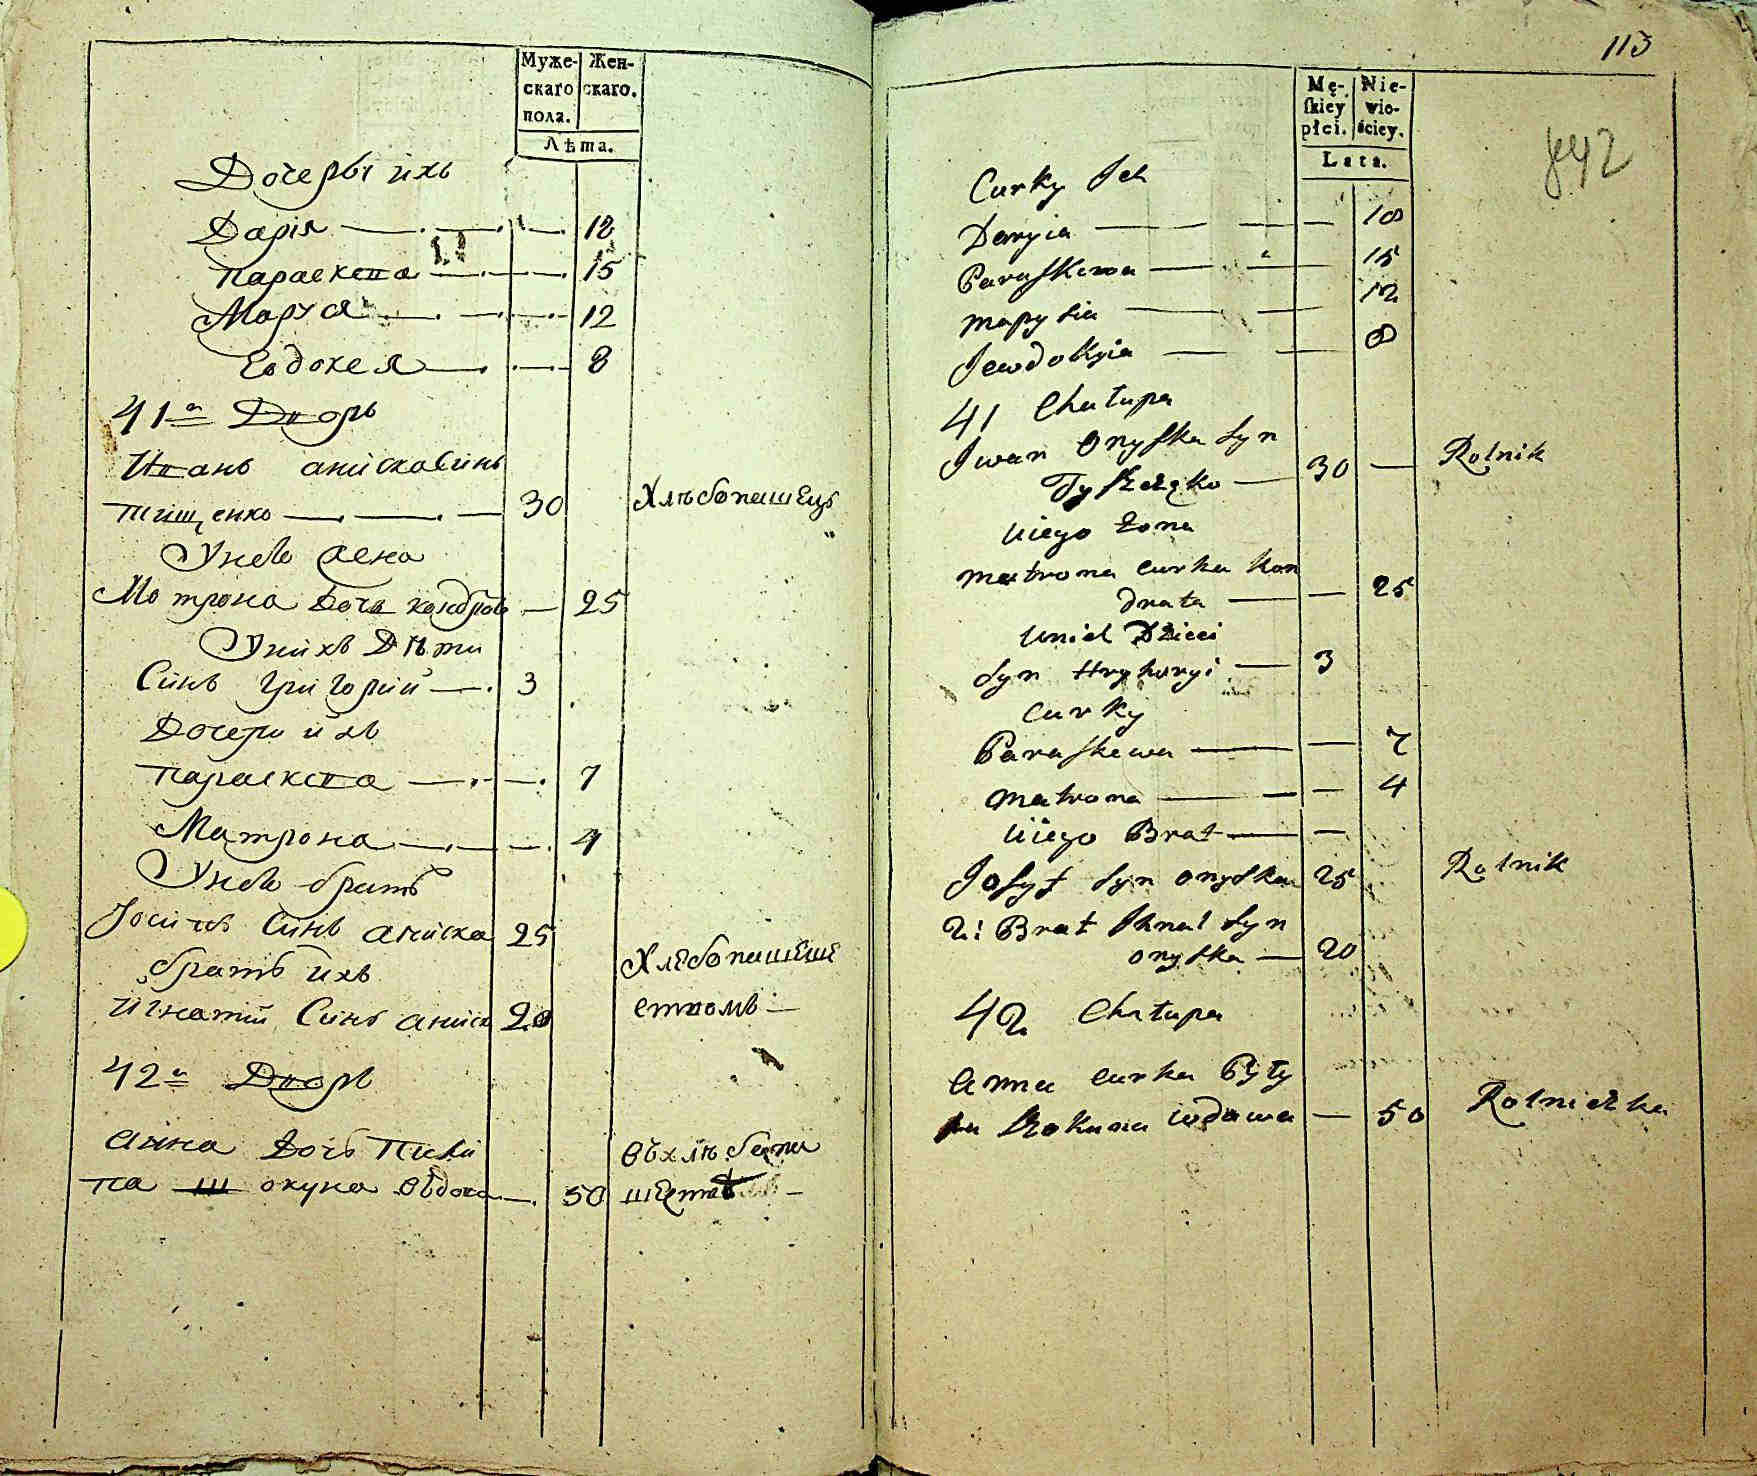 Муже- Жен-
скаго скаго.
пола.
Лѣта.
Дочеры ихъ
Дарія — 18
Параскева — 15
Маруся — 12
Евдокея — 8
41й Дворъ
Иванъ аниска Синъ
Тищенко — 30 Хлѣбопашецъ
У него Жена
Мотрона Дочь кондрата — 25
У нихъ Дѣти
Синъ григорий — 3
Дочери ихъ
Параскева — 7
Матрона — 4
У него братъ
Іосипъ Синъ аниска 25
братъ ихъ Хлѣбопашеше
игнатий Синъ аниска 20 ствомъ —
42й Дворъ
анна Дочь Пили
па окуна вдова — 50
113
Mę- Nie-
ſkiey wio-
płci. ściey.
Lata.
842
Curky Ich
Daryia — 18
Paraſkewa — 15
Marysia — 12
Jewdokyia — 8
41 Chałupa
Iwan Onyſka ſyn
Tyſzczęko — 30 — Rolnik
U iego żona
Matrona curka Kon
drata — 25
U nich Dzieci
ſyn Hryhoryi — 3
curky
Paraſkewa — 7
Matrona — 4
U iego Brat —
Josyf ſyn onyſka 25 Rolnik
2: Brat Ihnat ſyn
onyſka — 20
42 Chałupa
anna curka Pyły
pa wdowa — 50 Rolniczka